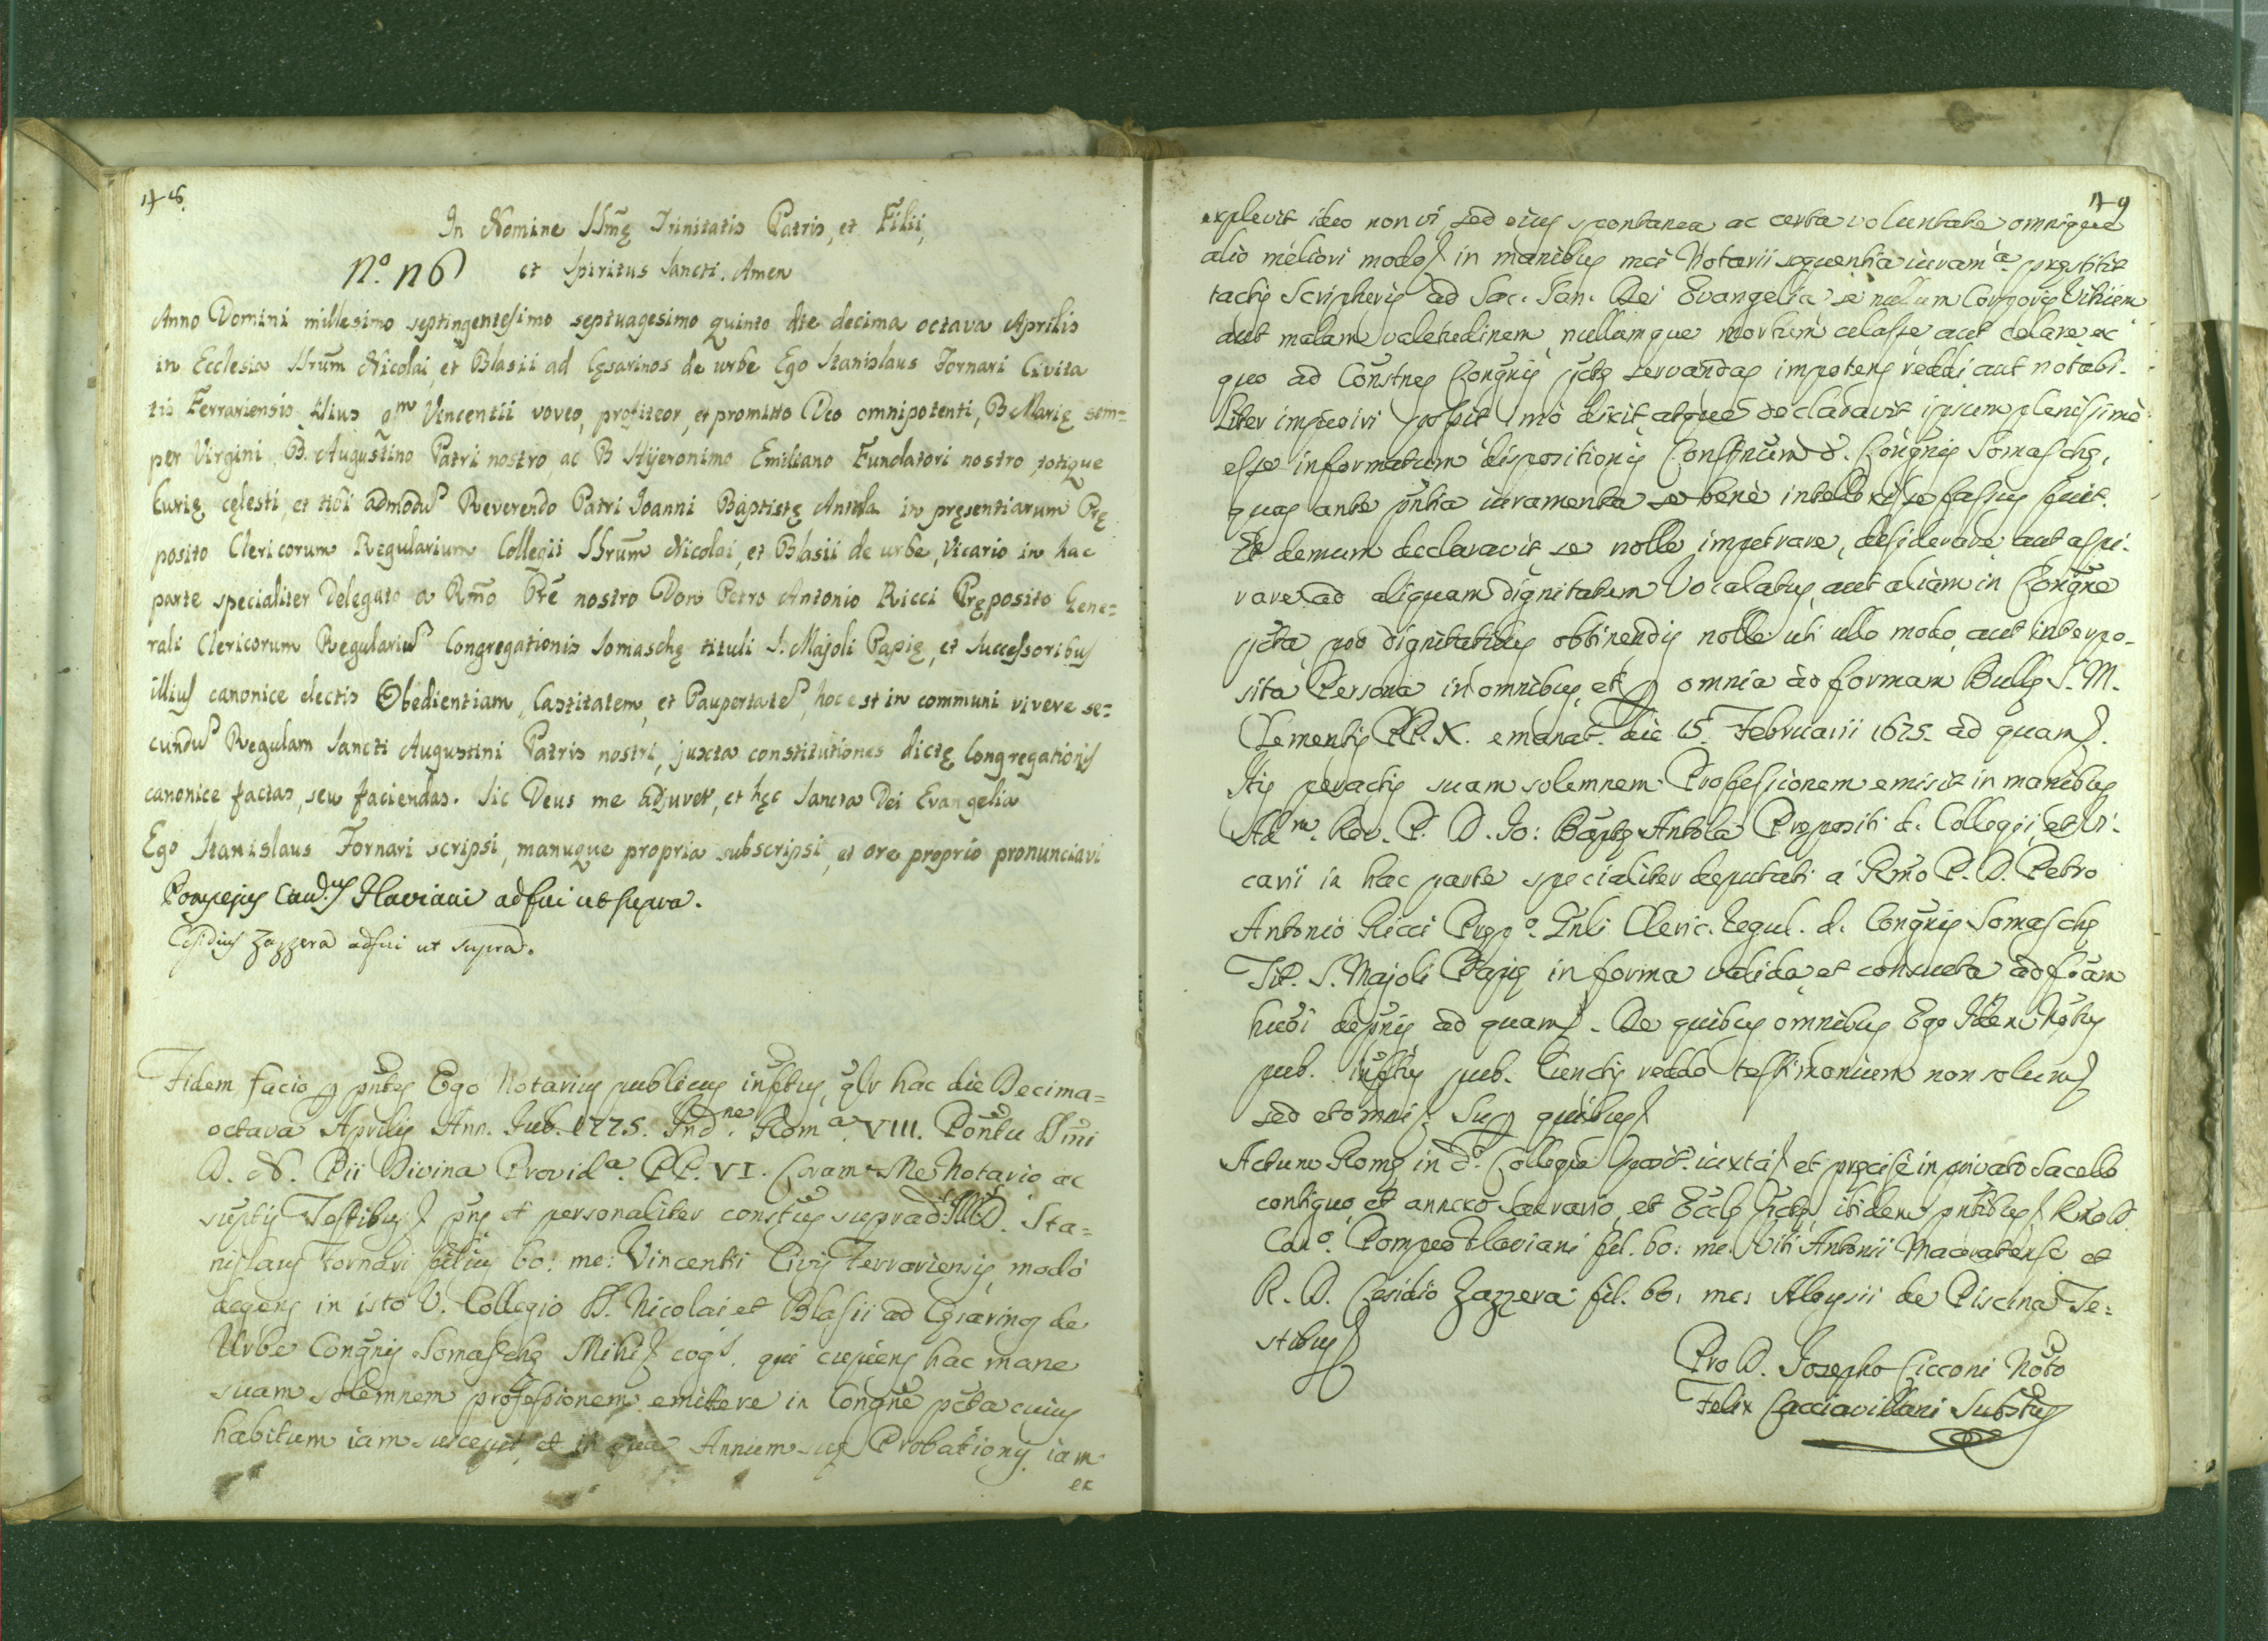 48.
In Nomine SSmę Trinitatis Patris, et Filii,
N.º 26 et Spiritus Sancti. Amen
Anno Domini millesimo septingentesimo septuagesimo quinto die decima octava Aprilis
in Ecclesia SSrum Nicolai, et Blasii ad Cęsarinos de urbe Ego Stanislaus Fornari Civita
tis Ferrariensis filius qm Vincentii voveo, profiteor, et promitto Deo omnipotenti, B. Marię sem=
per Virgini B. Augustino Patri nostro, ac B Hyeronimo Emiliano Fundatori nostro, totique
Curię cęlesti, et tibi admodu Reverendo Patri Joanni Baptistę Antola in pręsentiarum Prę
posito Clericorum Regularium Collegii SSrum Nicolai, et Blasii de urbe, Vicario in hac
parte specialiter Delegato a Rmo Pre nostro Don Petro Antonio Ricci Pręposito Gene=
rali Clericorum Regulariu Congregationis Somaschę tituli S. Majoli Papię, et Successoribus
illius canonice electis Obedientiam, Castitatem, et Paupertate, hoc est in communi vivere se=
cundu Regulam Sancti Augustini Patris nostri, juxta constitutiones dictę Congregationis
canonice factas, seu faciendas. Sic Deus me adjuvet, et hęc Sancta Dei Evangelia
Ego Stanislaus Fornari scripsi, manuque propria subscripsi, et ore proprio pronunciavi
Pompejus Can.us Flaviani adfui ut supra.
Cesidius Zazzera adfui ut supra.
Fidem facio p pntes Ego Notarius publicus infrtus, qlr hac die Decima=
octava Aprilis Ann. Jub. 1775. Ind.ne Rom.a VIII. Pontu SSmi
D. N. Pii Divina Provid.a PP. VI. Coram Me Notario ac
suptis Testibus pns et personaliter constus suprad. D. Sta=
nislaus Fornari filius bo: me: Vincentii Civis Ferrariensis, modo
degens in isto V. Collegio SS. Nicolai et Blasii ad Cęsarinos de
Urbe Congnis Somaschę Mihi cog.s qui cupiens hac mane
suam solemnem professionem emittere in Congne pcta cuius
habitum iam suscepit, et in qua Annum suę Probationis iam
ex
49
explevit ideo non vi, sed eius spontanea ac certa voluntate omnique
alio meliori modo in manibus mei Notarii sequentia iuram.a pręstitit
tactis Scripturis ad Sac. San. Dei Evangelia se nullum Corporis Vitium
aut malam valetudinem nullumque morbum celasse aut celare ex
quo ad Constnes Congnis pctę servandas impotens reddi aut notabi-
liter impediri possit imò dixit atque declaravit ipsum plenissimè
esse informatum dispositionis Constnum d. Congnis Somaschę,
quas ante pntia iuramenta se benè intellexisse fassus fuit.
Et demum declaravit se nolle impetrare, desiderare aut aspi-
rare ad aliquam dignitatem Vocalatus, aut aliam in Congne
pcta, pro dignitatibus obtinendis nolle uti ullo modo, aut interpo-
sita Persona in omnibus, et p omnia ad formam Bullę S. M.
Clementis PP. X. emanat. die 15. Februarii 1675. ad quam
His peractis suam solemnem Professionem emisit in manibus
Ad.m Rev. P. D. Jo: Baptę Antola Prępositi d. Collegii, et Vi-
carii in hac parte specialiter deputati a Rmo P. D. Petro
Antonio Ricci Pręp.o Gnli Cleric. Regul. d. Congnis Somaschę
Tit. S. Majoli Papię in forma valida, et consueta ad fram
huoi depnis ad quam. De quibus omnibus Ego Idem Notus
pub. Infrtus pub. Cunctis reddo testimonium non solum
sed et omni Sup quibus
Actum Romę in d.o Collegio posit. iuxta et pręcisè in privato Sacello
contiguo, et annexo Sacrario, et Ecclę pctę ibidem pntibus Rmo D.
Can.o Pompeo Flaviani fil. bo: me: Viti Antonii Maceratense et
R. D. Cesidio Zazzera fil. bo: me: Aloysii de Piscina Te=
stibus
Pro D. Josepho Cicconi Noto
Felix Cacciavillani Substus